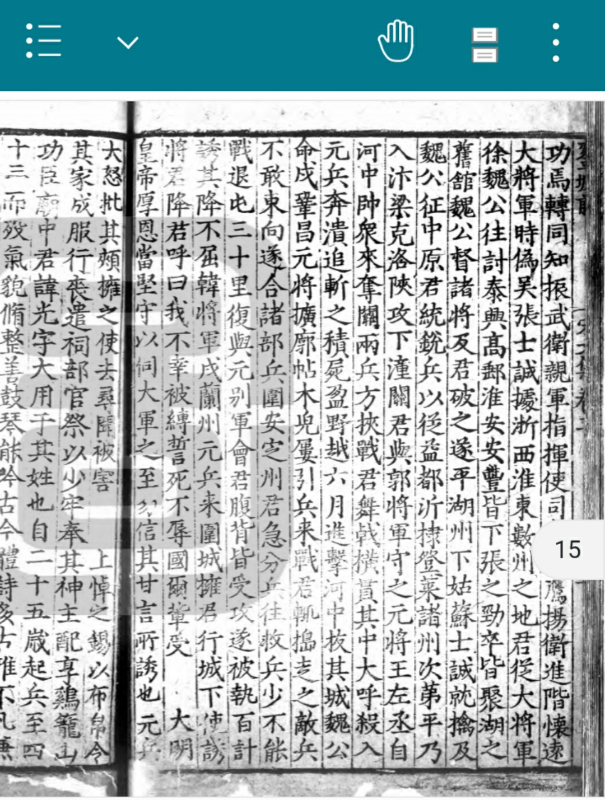 15
功焉轉同知振武衛親軍指揮使司鷹揚衛進階懷遠
大將軍時偽吳張士誠據浙西淮東數州之地君從大將軍
徐魏公往討泰興高郵淮安安豐皆下張之勁卒皆聚湖之
舊館魏公督諸將及君破之遂平湖州下姑蘇士誠就擒及
魏公征中原君統銳兵以從益都沂棣登萊諸州次第平乃
入汴梁克洛陝攻下潼關君與郭將軍守之元將王左丞自
河中帥衆來奪關兩兵方挾戰君舞戟橫貫其中大呼殺入
元兵奔潰追斬之積屍盈野越六月進擊河中拔其城魏公
命戍鞏昌元將擴廓帖木兒屢引兵來戰君輒搗走之敵兵
不敢東向遂合諸部兵圍安定州君急分兵往救兵少不能
戰退屯三十里復與元别軍會君腹背皆受攻遂被執百計
誘其降不屈韓將軍戍蘭州元兵来圍城擁君行城下使誘
將君降君呼曰我不幸被縛誓死不辱國爾輩受 大明
皇帝厚恩當堅守以伺大軍之至勿信其甘言所誘也元兵
大怒批其頰擁之使去尋聞被害 上悼之錫以布帛令
其家成服行喪遣祠部官祭以少牢奉其神主配享雞籠山
功臣廟中君諱光字大用于其姓也自二十五歲起兵至四
十三而殁氣貌脩整善鼓琴能吟古今體詩古雅不凡